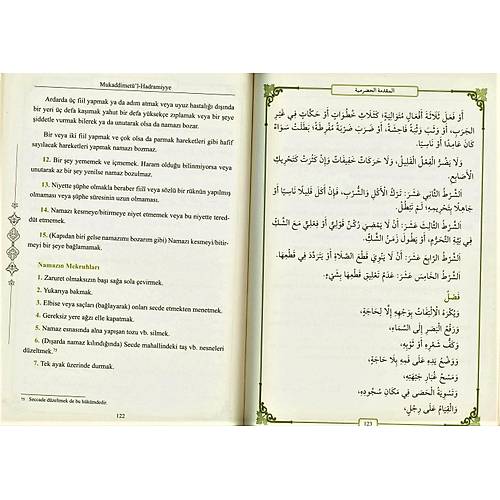 Mukaddimetü'l-Hadramiyye
Ardarda üç fiil yapmak ya da adım atmak veya uyuz hastalığı dışında
bir yeri üç defa kaşımak yahut bir defa yüksekçe zıplamak veya bir şeye
şiddetle vurmak bilerek ya da unutarak olsa da namazı bozar.
Bir veya iki fiil yapmak ve çok olsa da parmak hareketleri gibi hafif
sayılacak hareketler yapmak namazı bozmaz.
12. Bir şey yememek ve içmemek. Haram olduğu bilinmiyorsa veya
unutarak az bir şey yenilse namaz bozulmaz.
13. Niyette şüphe olmakla beraber fiilî veya sözlü bir rüknün yapılmış
olmaması veya şüphe süresinin uzun olmaması.
14. Namazı kesmeye/bitirmeye niyet etmemek veya bu niyette tered-
düt etmemek.
15. (Kapıdan biri gelse namazımı bozarım gibi) Namazı kesmeyi/bitir-
meyi bir şeye bağlamamak.
Namazın Mekruhları
1. Zaruret olmaksızın başı sağa sola çevirmek.
2. Yukarıya bakmak.
3. Elbise veya saçları (bağlayarak) onları secde etmekten menetmek.
4. Gereksiz yere ağzı elle kapatmak.
5. Namaz esnasında alna yapışan tozu vb. silmek.
6. (Dışarda namaz kılındığında) Secde mahallindeki taş vb. nesneleri
düzeltmek.⁷⁵
7. Tek ayak üzerinde durmak.
75 Seccade düzeltmek de bu hükümdedir.
122
المقدمة الحضرمية
أَوْ فَعَلَ ثَلَاثَةَ أَفْعَالٍ مُتَوَالِيَةٍ؛ كَثَلَاثِ خُطُوَاتٍ أَوْ حَكَّاتٍ فِي غَيْرِ
الْجَرَبِ، أَوْ وَثَبَ وَثْبَةً فَاحِشَةً، أَوْ ضَرَبَ ضَرْبَةً مُفْرِطَةً؛ بَطَلَتْ سَوَاءٌ
كَانَ عَامِدًا أَوْ نَاسِيًا.
وَلَا يَضُرُّ الْفِعْلُ الْقَلِيلُ، وَلَا حَرَكَاتٌ خَفِيفَاتٌ وَإِنْ كَثُرَتْ كَتَحْرِيكِ
الْأَصَابِعِ.
اَلشَّرْطُ الثَّانِي عَشَرَ: تَرْكُ الْأَكْلِ وَالشُّرْبِ، فَإِنْ أَكَلَ قَلِيلًا نَاسِيًا أَوْ
جَاهِلًا بِتَحْرِيمِهِ؛ لَمْ تَبْطُلْ.
اَلشَّرْطُ الثَّالِثَ عَشَرَ: أَنْ لَا يَمْضِيَ رُكْنٌ قَوْلِيٌّ أَوْ فِعْلِيٌّ مَعَ الشَّكِّ
فِي نِيَّةِ التَّحَرُّمِ، أَوْ يَطُولَ زَمَنُ الشَّكِّ.
اَلشَّرْطُ الرَّابِعَ عَشَرَ: أَنْ لَا يَنْوِيَ قَطْعَ الصَّلَاةِ أَوْ يَتَرَدَّدَ فِي قَطْعِهَا.
اَلشَّرْطُ الْخَامِسَ عَشَرَ: عَدَمُ تَعْلِيقِ قَطْعِهَا بِشَيْءٍ.
فَصْلٌ
وَيُكْرَهُ الْاِلْتِفَاتُ بِوَجْهِهِ إِلَّا لِحَاجَةٍ،
وَرَفْعُ الْبَصَرِ إِلَى السَّمَاءِ،
وَكَفُّ شَعْرِهِ أَوْ ثَوْبِهِ،
وَوَضْعُ يَدِهِ عَلَى فَمِهِ بِلَا حَاجَةٍ،
وَمَسْحُ غُبَارِ جَبْهَتِهِ،
وَتَسْوِيَةُ الْحَصَى فِي مَكَانِ سُجُودِهِ،
وَالْقِيَامُ عَلَى رِجْلٍ،
123